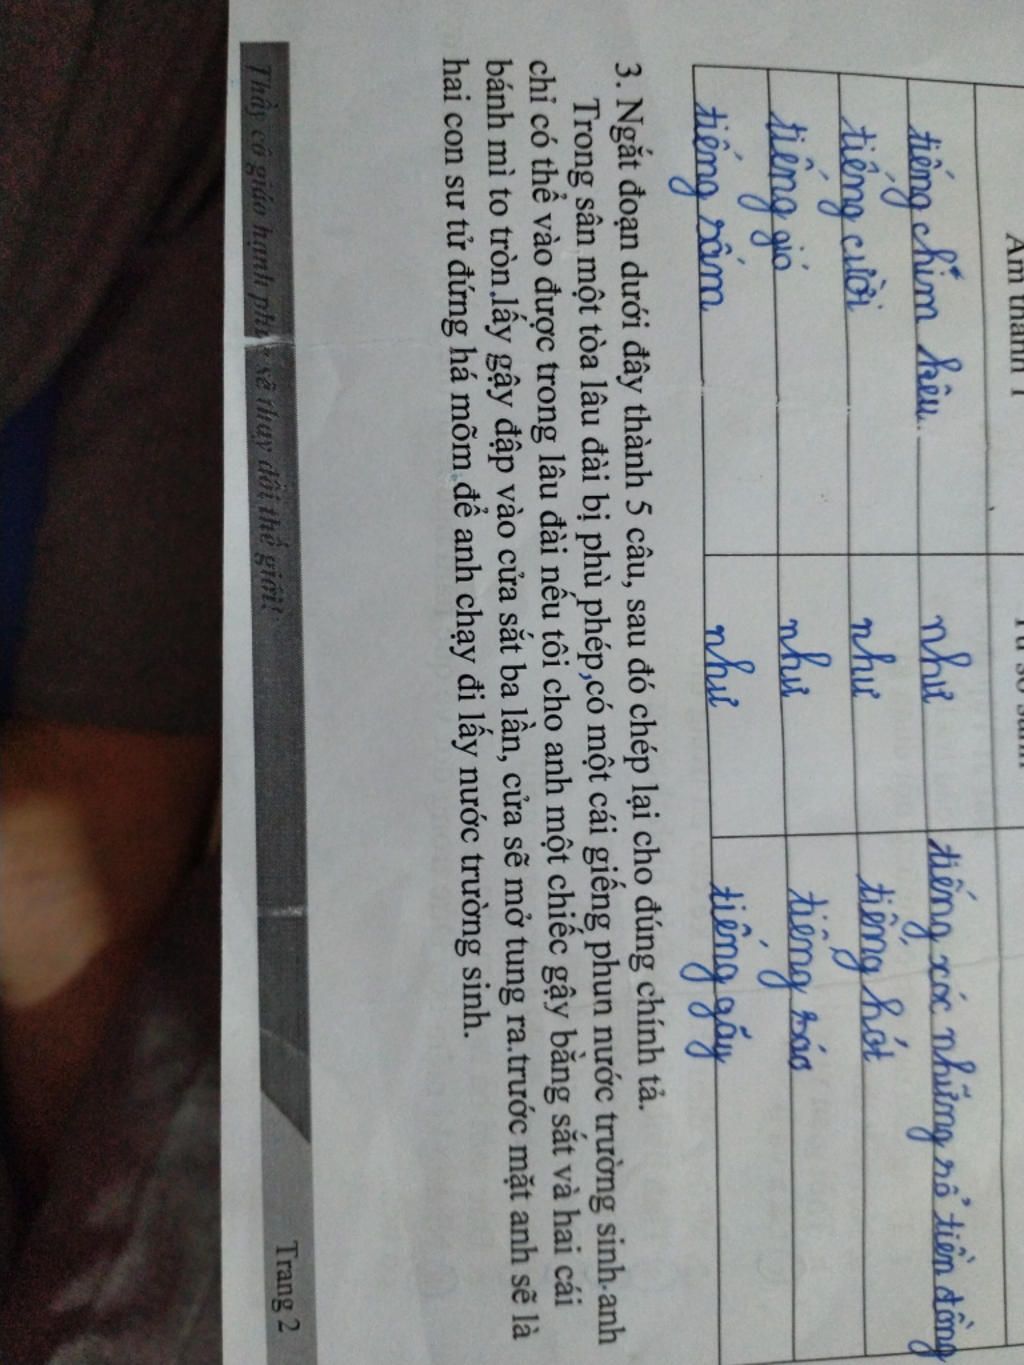 Âm thanh 1
tiếng chim kêu như tiếng xóc những rổ tiền đồng
tiếng cười như tiếng hót
tiếng gió như tiếng sáo
tiếng sấm như tiếng gãy
3. Ngắt đoạn dưới đây thành 5 câu, sau đó chép lại cho đúng chính tả.
Trong sân một tòa lâu đài bị phù phép,có một cái giếng phun nước trường sinh.anh
chỉ có thể vào được trong lâu đài nếu tôi cho anh một chiếc gậy bằng sắt và hai cái
bánh mì to tròn.lấy gậy đập vào cửa sắt ba lần, cửa sẽ mở tung ra.trước mặt anh sẽ là
hai con sư tử đứng há mõm.để anh chạy đi lấy nước trường sinh.
Thầy cô giáo hạnh phúc sẽ thay đổi thế giới!
Trang 2